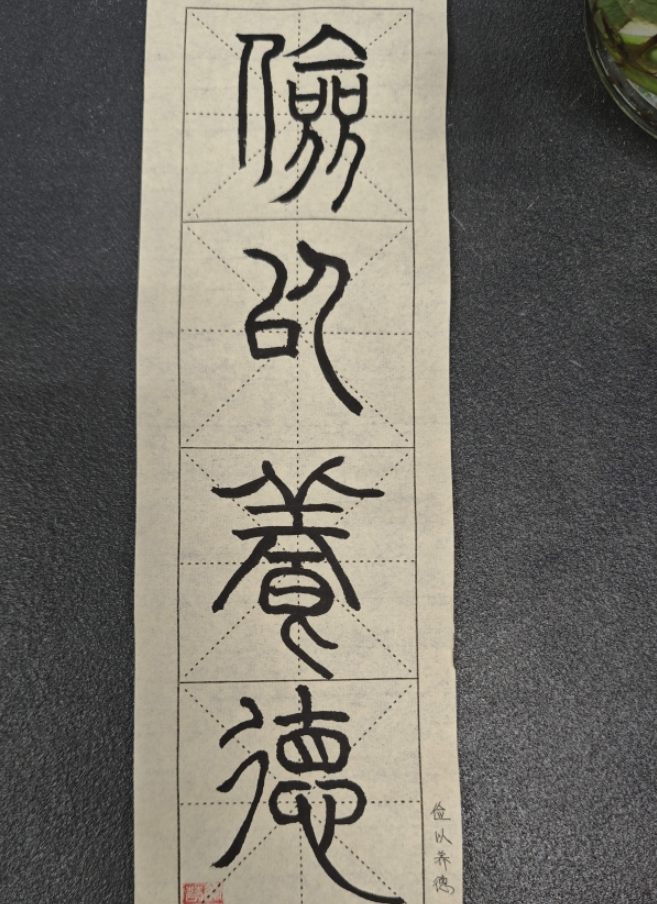 儉以養德
俭以养德